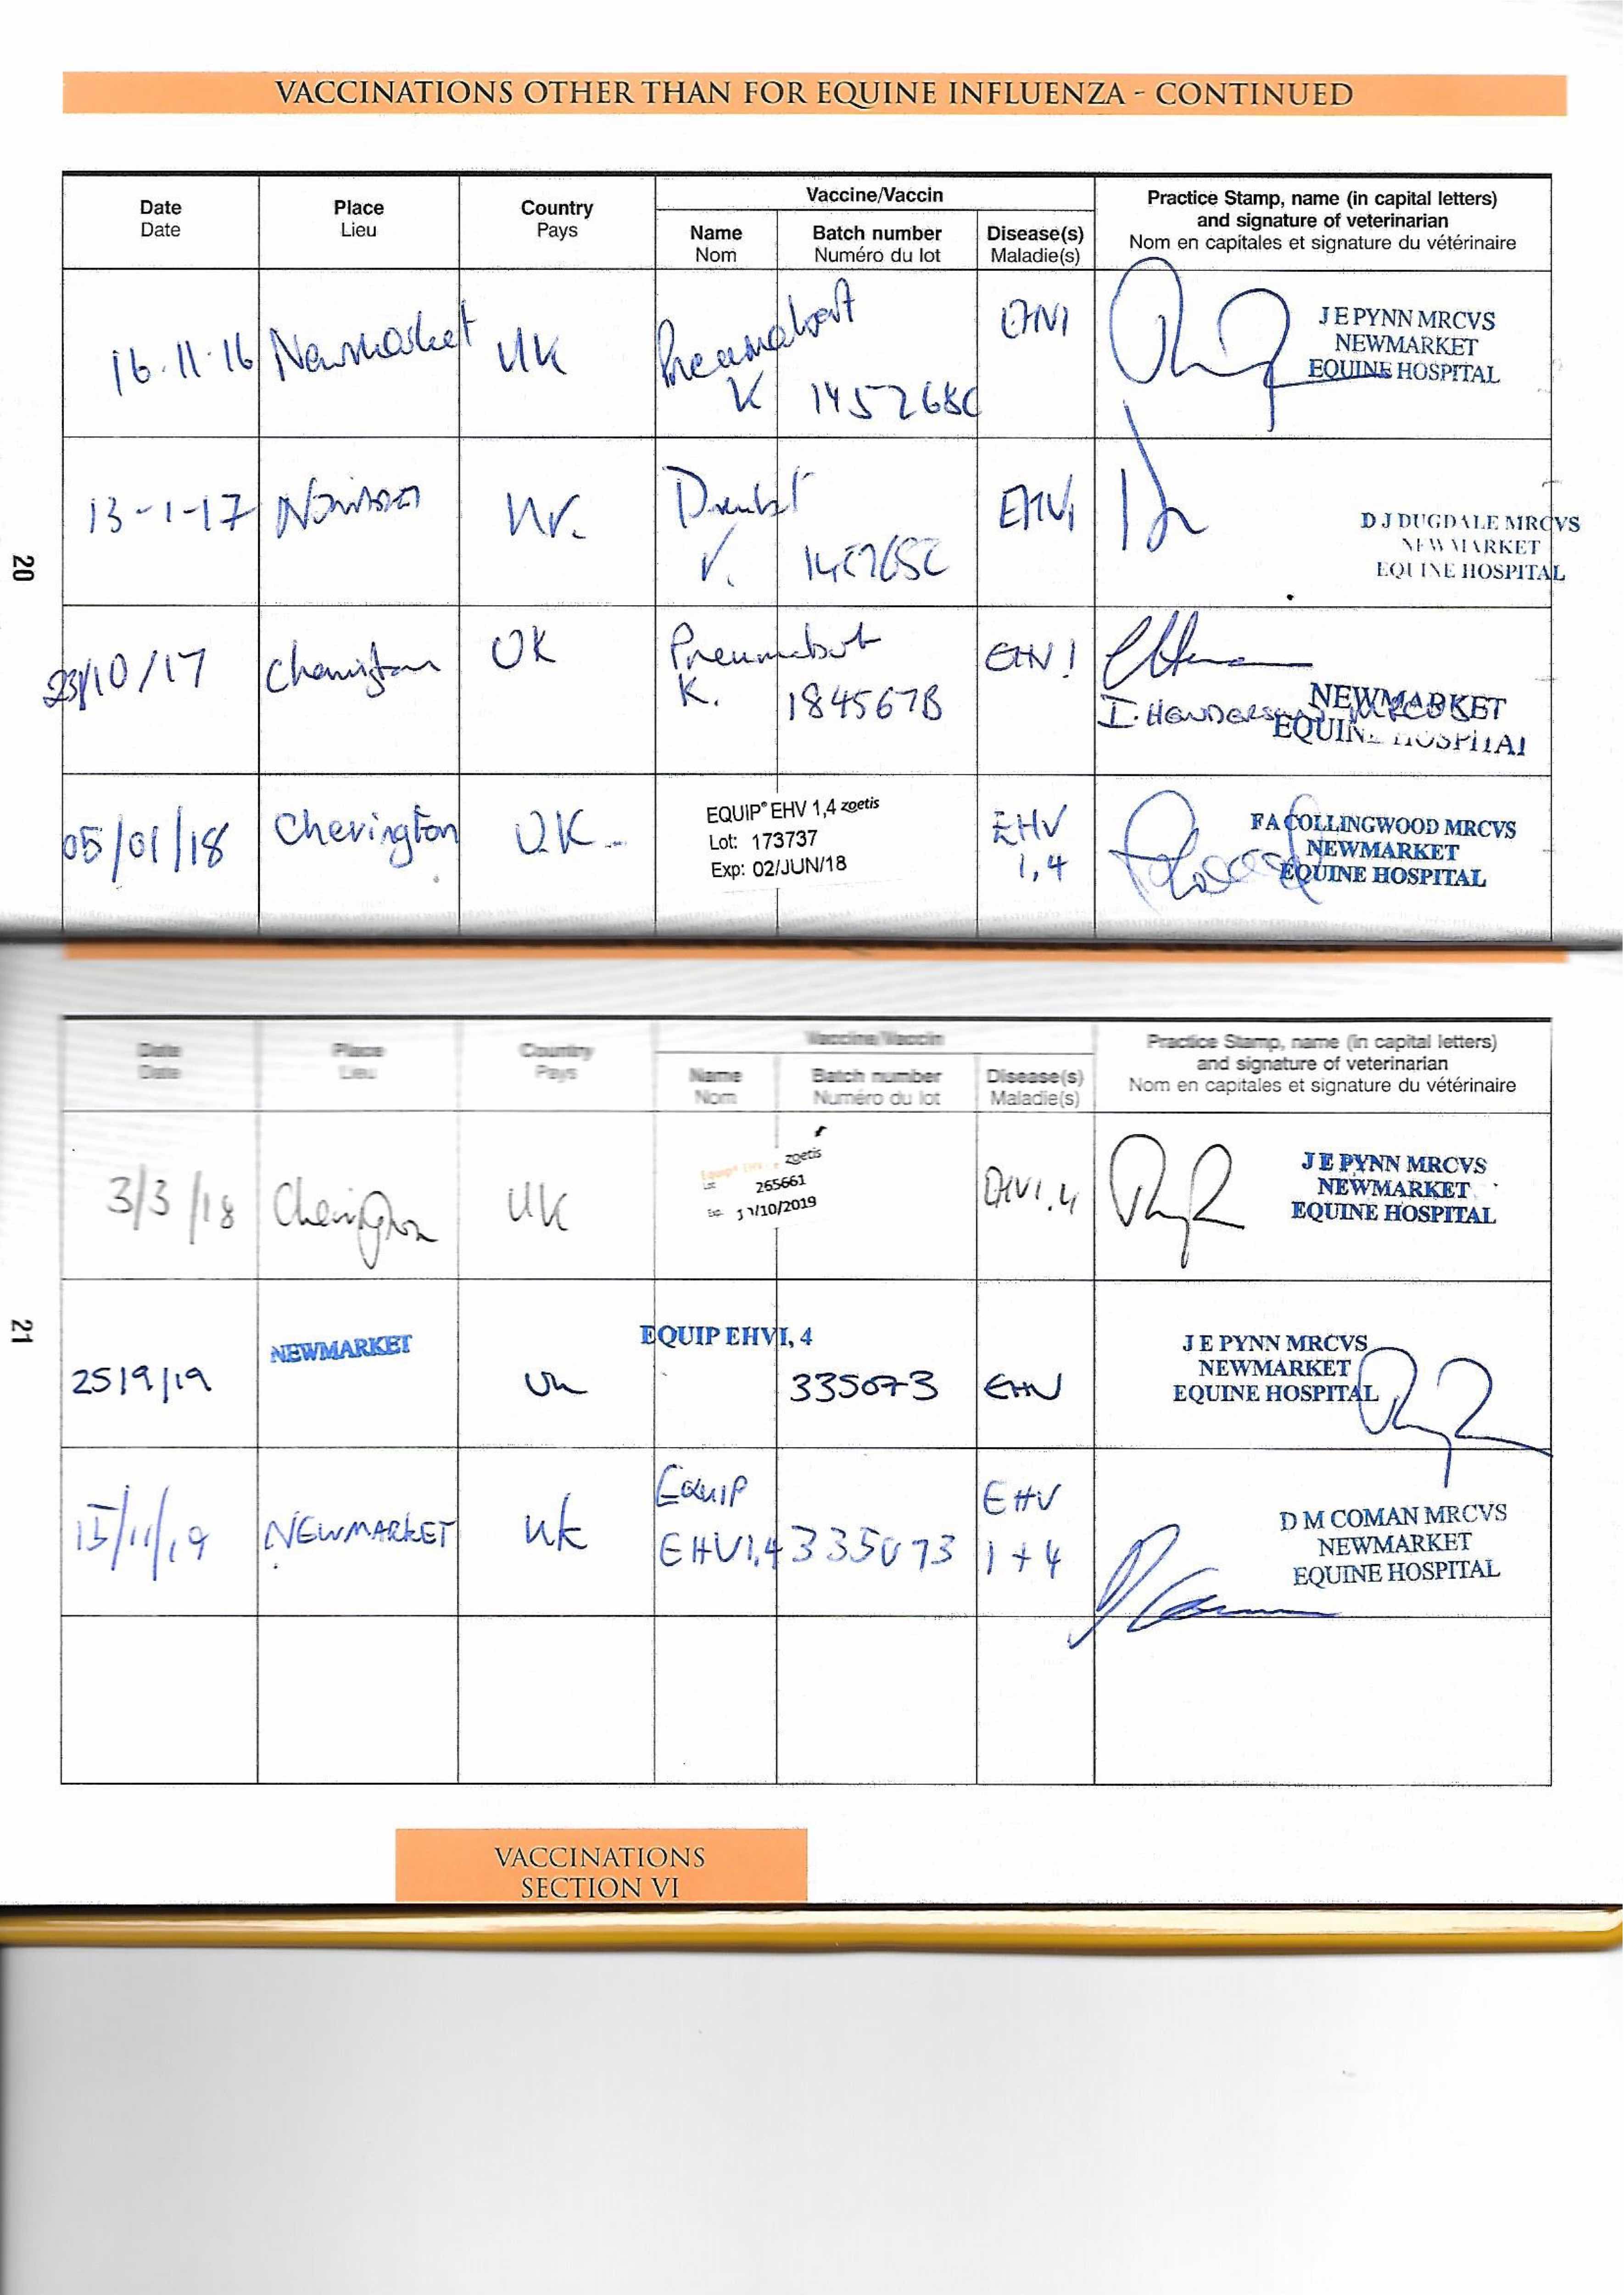 VACCINATIONS OTHER THAN FOR EQUINE INFLUENZA - CONTINUED
Date
Date
Place
Lieu
Country
Pays
Vaccine/Vaccin
Name
Nom
Batch number
Numéro du lot
Disease(s)
Maladie(s)
Practice Stamp, name (in capital letters)
and signature of veterinarian
Nom en capitales et signature du vétérinaire
16.11.16 Newmarket UK
K 145268C
J E PYNN MRCVS
NEWMARKET
EQUINE HOSPITAL
13-1-17
EHV1
D J DUGDALE MRCVS
NEWMARKET
EQUINE HOSPITAL
20
23/10/17 UK
K. 184567B
I. HENDERSON MRCVS
NEWMARKET
EQUINE HOSPITAL
05/01/18 Chevington UK
EQUIP® EHV 1,4 zoetis
Lot: 173737
Exp: 02/JUN/18
EHV
1,4
F A COLLINGWOOD MRCVS
NEWMARKET
EQUINE HOSPITAL
Date
Date
Place
Lieu
Country
Pays
Vaccine/Vaccin
Name
Nom
Batch number
Numéro du lot
Disease(s)
Maladie(s)
Practice Stamp, name (in capital letters)
and signature of veterinarian
Nom en capitales et signature du vétérinaire
3/3/18 UK
zoetis
265661
/10/2019
J E PYNN MRCVS
NEWMARKET
EQUINE HOSPITAL
21
25/9/19 NEWMARKET UK
EQUIP EHV1, 4
335073 EHV
J E PYNN MRCVS
NEWMARKET
EQUINE HOSPITAL
15/11/19 NEWMARKET UK
EQUIP
EHV1,4 335073
EHV
1+4
D M COMAN MRCVS
NEWMARKET
EQUINE HOSPITAL
VACCINATIONS
SECTION VI